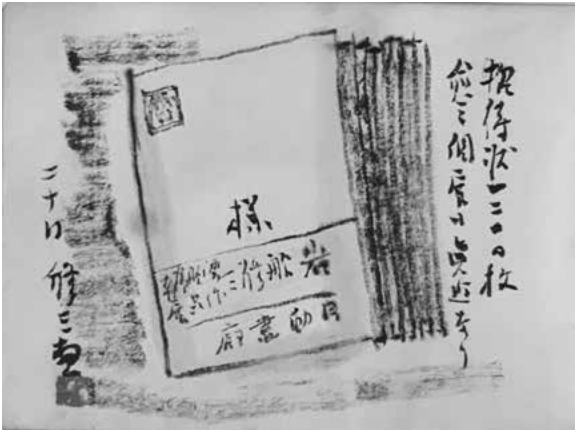 招待状一二〇〇枚
愈々個展日眞近なり
様
岩船修三
日動畫廊
二十日 修三画